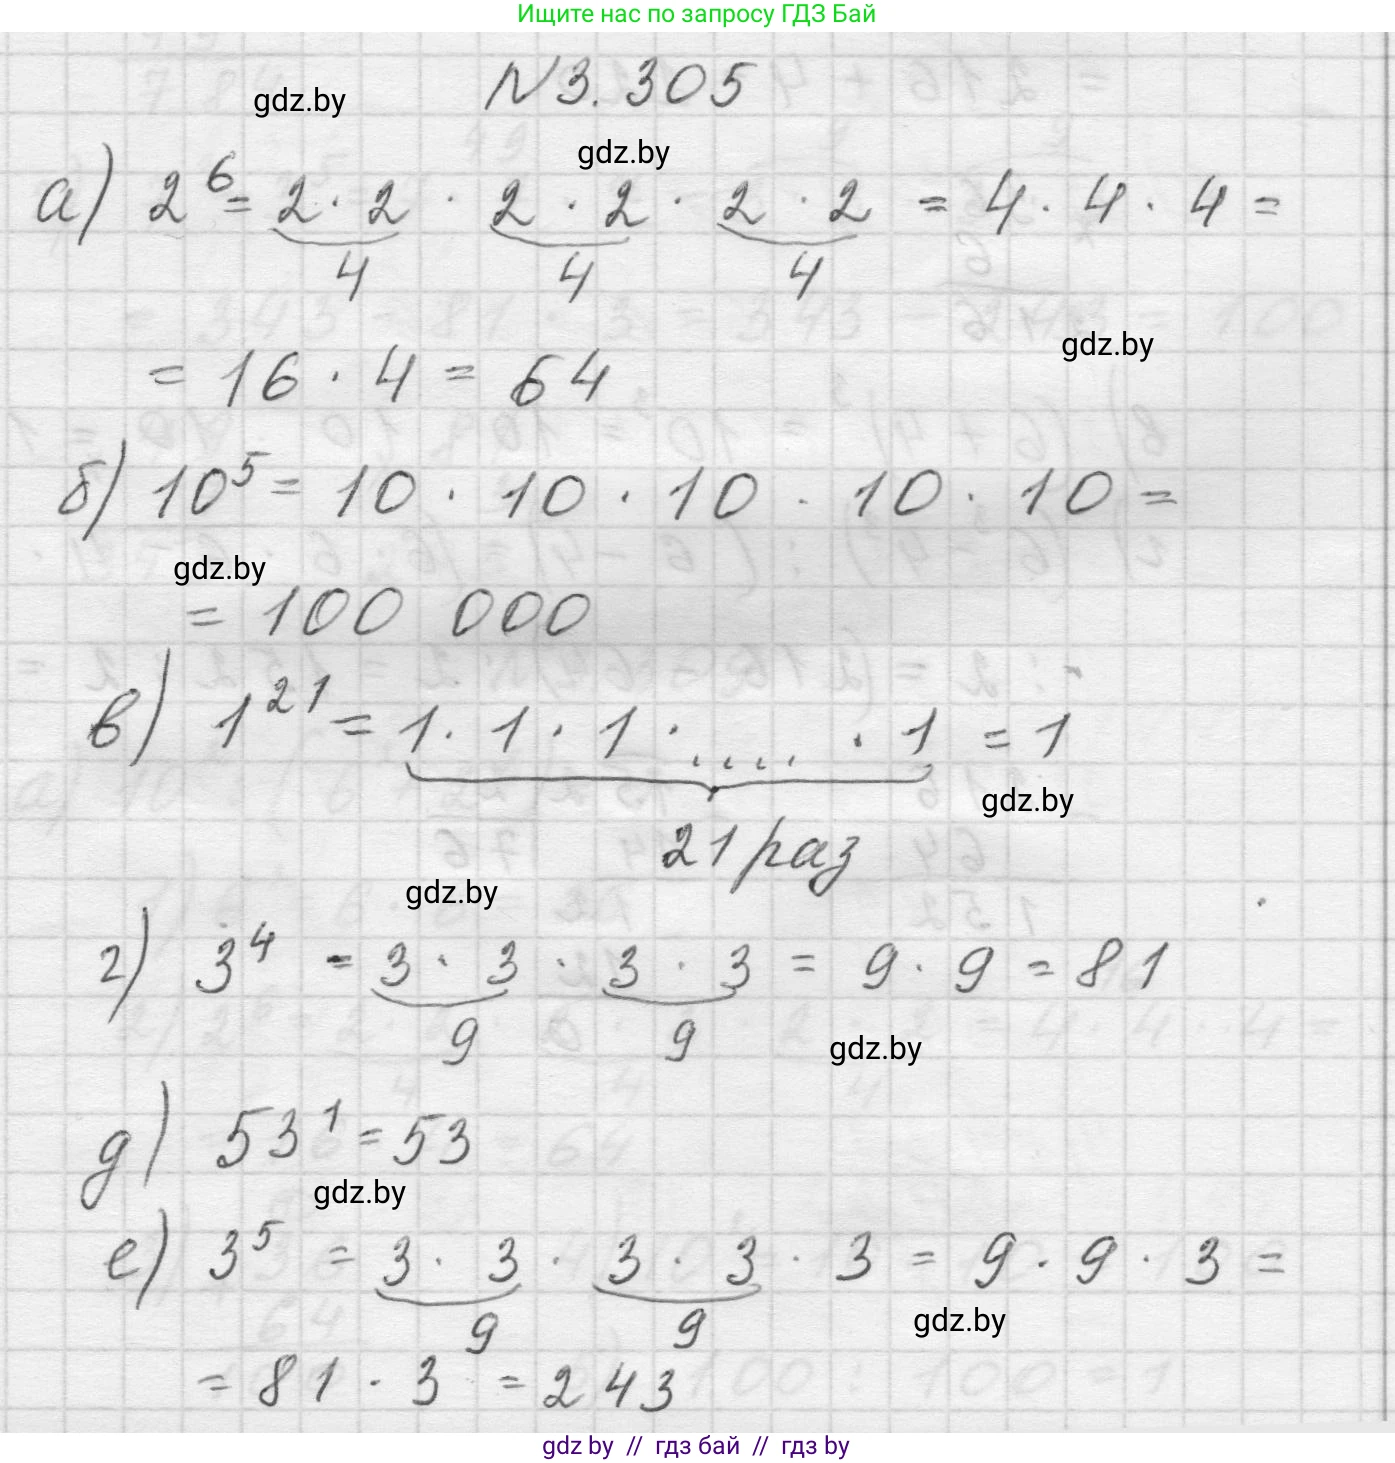 Ищите нас по запросу ГДЗ Бай
N 3. 305
gdz.by
gdz.by
а) 2⁶ = 2 · 2 · 2 · 2 · 2 · 2 = 4 · 4 · 4 =
4 4 4
gdz.by
= 16 · 4 = 64
б) 10⁵ = 10 · 10 · 10 · 10 · 10 =
gdz.by
= 100 000
в) 1²¹ = 1 · 1 · 1 · .... · 1 = 1
gdz.by
21 раз
gdz.by
г) 3⁴ = 3 · 3 · 3 · 3 = 9 · 9 = 81
9 9
gdz.by
д) 53¹ = 53
gdz.by
е) 3⁵ = 3 · 3 · 3 · 3 · 3 = 9 · 9 · 3 =
gdz.by
9 9
= 81 · 3 = 243
gdz by // гдз бай // гдз by